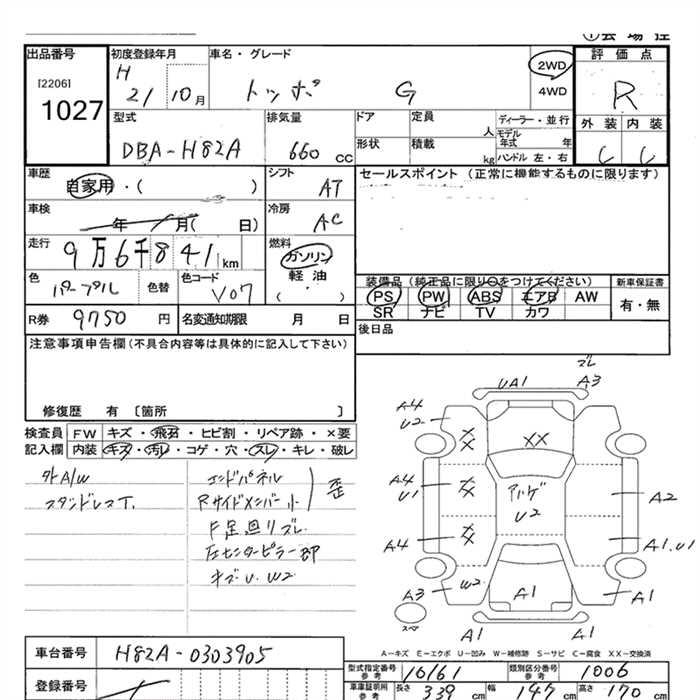 出品番号
[2206]
1027
初度登録年月
H
21 10月
車名・グレード
トッポ G
2WD
4WD
評価点
R
外装 内装
C C
型式
DBA-H82A
排気量
660 cc
ドア
形状
定員
人
積載
kg
ディーラー・並行
モデル
年式 年
ハンドル 左・右
車歴
自家用・( )
シフト
AT
車検
年 月( 日)
冷房
AC
走行
9万6千841km
燃料
ガソリン
軽油
( )
色
パープル
色替
色コード
V07
R券 9750 円
名変通知期限 月 日
セールスポイント (正常に機能するものに限ります)
装備品 (純正品に限り○をつけてください)
PS PW ABS エアB AW
SR ナビ TV カワ
新車保証書
有・無
後日品
注意事項申告欄(不具合内容等は具体的に記入して下さい)
修復歴 有 〔箇所 〕
検査員
記入欄
FW キズ・飛石・ヒビ割・リペア跡・×要
内装 キズ・汚レ・コゲ・穴・スレ・キレ・破レ
外A/W
スタッドレスT.
エンドパネル
Rサイドメンバー小
歪
F足回リズレ
左センターピラー部
キズU.W2
ズレ
UA1 A3
A4
U2
XX
XX
A4
U1
XX
アルゲ
U2
A2
A4
XX
A1.U1
A3
W2
A1
A1
スペア
A1 A1
A-キズ E-エクボ U-凹み W-補修跡 S-サビ C-腐食 XX-交換済
車台番号 H82A-0303905
登録番号
型式指定番号
参考
16161
類別区分番号
参考
1006
車庫証明用
参考
長さ 339 cm 幅 147 cm 高さ 170 cm